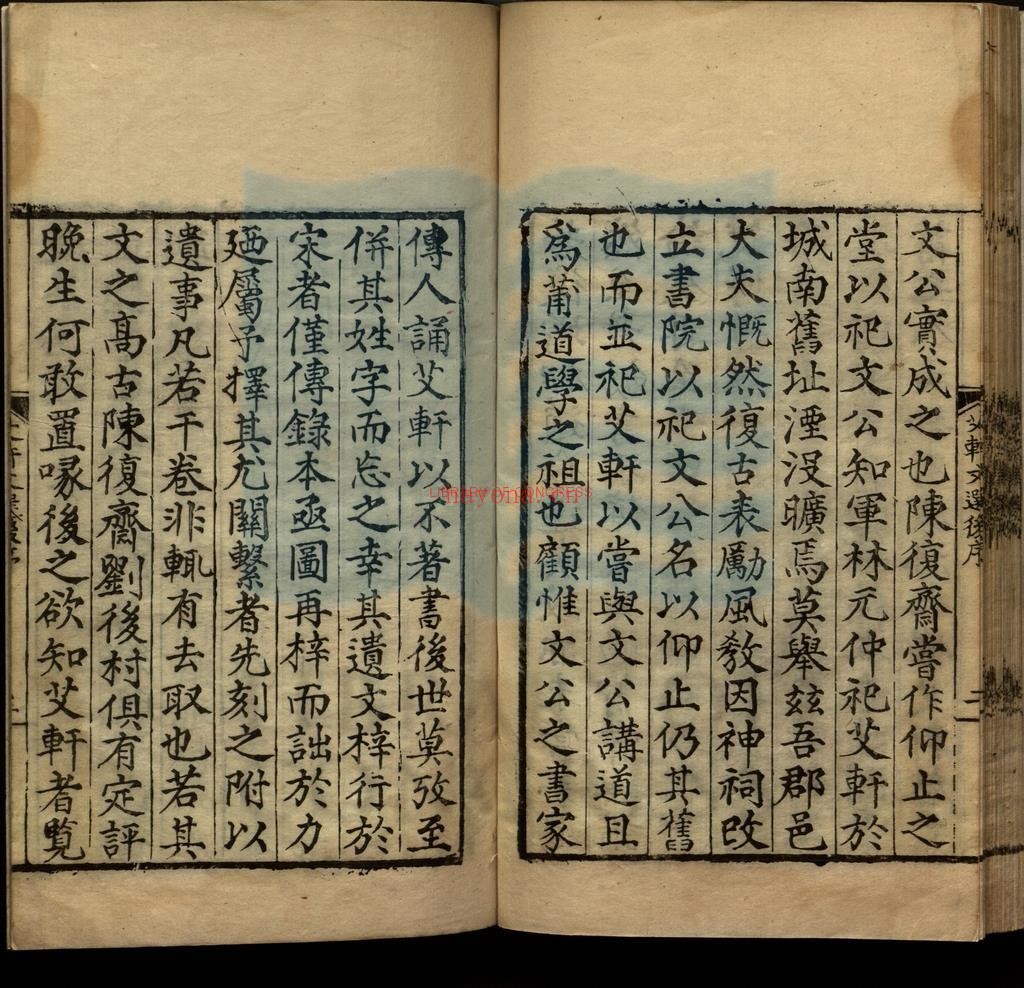 艾軒文選後序
二
文公實成之也陳復齋嘗作仰止之
堂以祀文公知軍林元仲祀艾軒於
城南舊址湮沒曠焉莫舉玆吾郡邑
大夫慨然復古表勵風敎因神祠改
立書院以祀文公名以仰止仍其舊
也而並祀艾軒以嘗與文公講道且
爲莆道學之祖也顧惟文公之書家
傳人誦艾軒以不著書後世莫攷至
併其姓字而忘之幸其遺文梓行於
宋者僅傳錄本亟圖再梓而詘於力
廼屬予擇其尤關繫者先刻之附以
遺事凡若干卷非輒有去取也若其
文之高古陳復齋劉後村俱有定評
晚生何敢置喙後之欲知艾軒者覧
LIBRARY OF CONGRESS